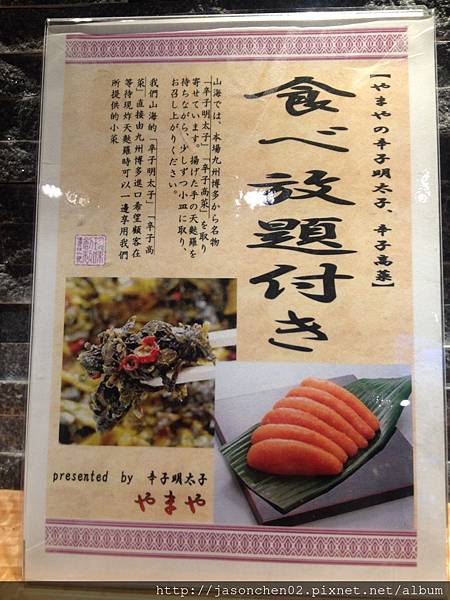 【やまやの辛子明太子、辛子高菜】
食べ放題付き
山海では、本場九州博多から名物
「辛子明太子」「辛子高菜」を取り
寄せています。揚げた手の天麩羅を
待ちながら、少しずつ小皿に取り、
お召し上がりください。
我們山海的「辛子明太子」「辛子高
菜」直接由九州博多進口希望顧客在
等待現炸天麩羅時可以一邊享用我們
所提供的小菜
presented by 辛子明太子
やまや
http://jasonchen02.pixnet.net/album